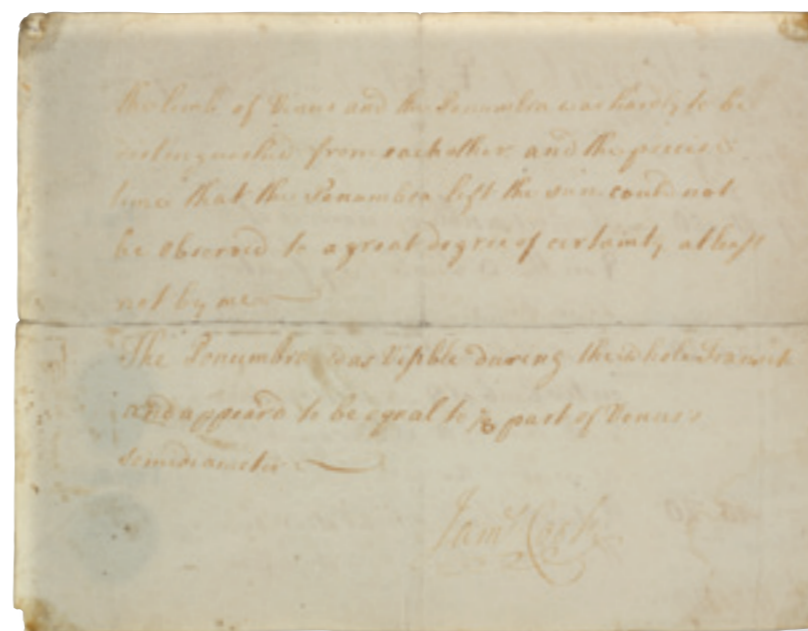 the limb of Venus and the Penumbra was hardly to be
distinguished from each other and the precise
time that the Penumbra left the sun could not
be observed to a great degree of certainty at least
not by me
The Penumbra was Visible during the whole Transit
and appear'd to be equal to part of Venus's
semidiameter
Jam.s Cook